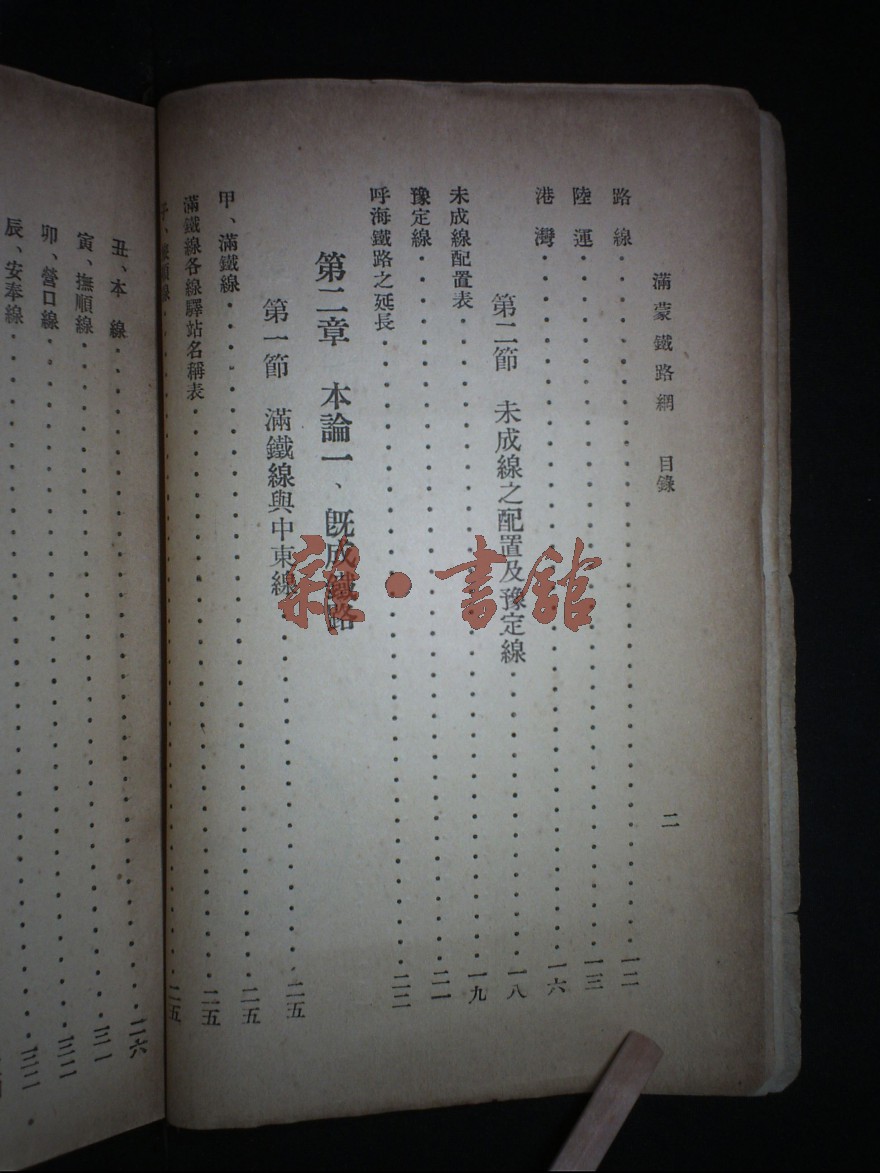 滿蒙鐵路網 目錄 二
路線 一二
陸運 一三
港灣 一六
第二節 未成線之配置及豫定線 一八
未成線配置表 一九
豫定線 二一
呼海鐵路之延長 二二
第二章 本論一、旣成鐵路
第一節 滿鐵線與中東線 二五
甲、滿鐵線 二五
滿鐵線各線驛站名稱表 二五
線 二五
丑、本線 二六
寅、撫順線 三一
卯、營口線 三二
辰、安奉線 三二
雜·書館